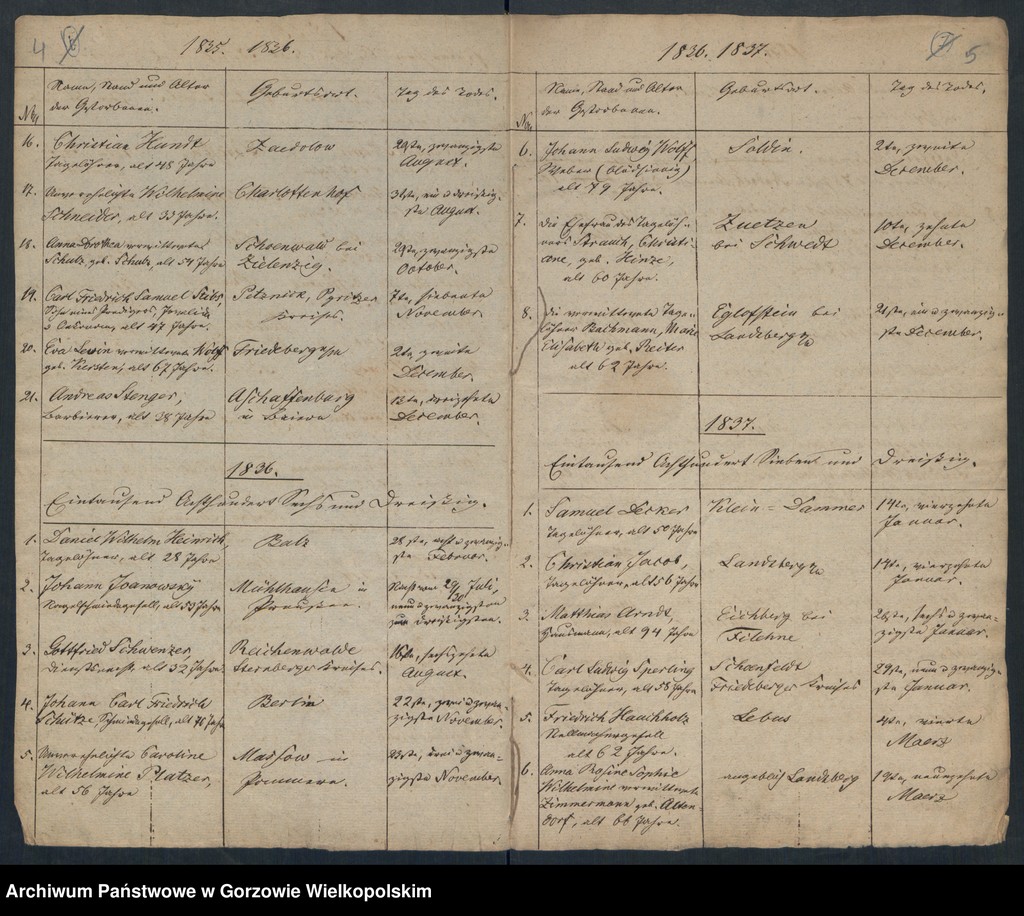 4
1835. 1836.
Nro
Name, Stand und Alter
der Gestorbenen.
Geburtsort.
Tag des Todes.
16. Christian Hundt
Tagelöhner, alt 48 Jahre
29te, zwanzigste
August.
17. Unverehelichte Wilhelmine
Schneider, alt 33 Jahre.
Charlottenhof
31te, ein u dreißig-
ste August.
18. Anna verwittwete
Schulz, geb. Schulz, alt 54 Jahre
Schoenwald bei
Zielenzig.
29te, zwanzigste
October.
19. Carl Friedrich Samuel
alt 47 Jahre.
Petznick, Pyritzer
Kreises.
7te, siebente
November.
20. Eva Lewin verwittwete Wolff
geb. Kersten, alt 67 Jahre.
Friedeberg
2te, zweite
December.
21. Andreas Stenger,
Barbierer, alt 38 Jahre
Aschaffenburg
in Baiern
13te, dreizehnte
December.
1836.
Eintausend Achthundert Sechs und Dreißig.
1. Daniel Wilhelm Heinrich,
Tagelöhner, alt 28 Jahre
Balz
28ste, acht u zwanzig-
ste Februar.
2. Johann Joanowsky
Nagelschmiedegesell, alt 33 Jahre
Mühlhausen in
Preussen.
Nacht vom 29/30 Juli,
neun u zwanzigsten
zum dreißigsten.
3. Gottfried Schwenzer,
Dienstknecht, alt 32 Jahre
Reichenwalde
Sternberger Kreises.
16te, sechszehnte
August.
4. Johann Carl Friedrich
Schütze, Schmiedegesell, alt 76 Jahre
Berlin
22ste, zwei u zwan-
zigste November.
5. Unverehelichte Caroline
Wilhelmine Platzer,
alt 56 Jahre
Massow in
Pommern.
23ste, drei u zwan-
zigste November.
5
1836. 1837.
Nro
Name, Stand und Alter
der Gestorbenen.
Geburtsort.
Tag des Todes.
6. Johann Ludwig Wolff
Weber (blödsinnig)
alt 79 Jahre.
Soldin.
2te, zweite
December.
7. Die Ehefrau des Tagelöh-
ners Strauch, Christi-
ane, geb. Hinze,
alt 60 Jahre.
Zuetzen
bei Schwedt
10te, zehnte
December.
8. Die verwittwete Tage-
löhner Bachmann, Marie
Elisabeth geb. Reiter
alt 62 Jahre.
Eglofstein bei
Landsberg a/W
21ste, ein u zwanzig-
ste December.
1837.
Eintausend Achthundert Sieben und Dreißig.
1. Samuel Decker
Tagelöhner, alt 50 Jahre
Klein-Dammer
14te, vierzehnte
Januar.
2. Christian Jacob,
Tagelöhner, alt 56 Jahre
Landsberg a/W
14te, vierzehnte
Januar.
3. Matthias Arndt,
Hausmann, alt 94 Jahre
Eichberg bei
Filehne
26ste, sechs u zwan-
zigste Januar.
4. Carl Ludwig Sperling
Tagelöhner, alt 58 Jahre
Schoenfeldt
Friedeberger Kreises
29ste, neun u zwanzig-
ste Januar.
5. Friedrich Hauchholz
alt 62 Jahre.
Lebus
4te, vierte
Maerz
6. Anna Rosine Sophie
Wilhelmine verwittwete
Zimmermann geb. Alten-
dorf, alt 66 Jahre.
angeblich Landsberg
19te, neunzehnte
Maerz
Archiwum Państwowe w Gorzowie Wielkopolskim